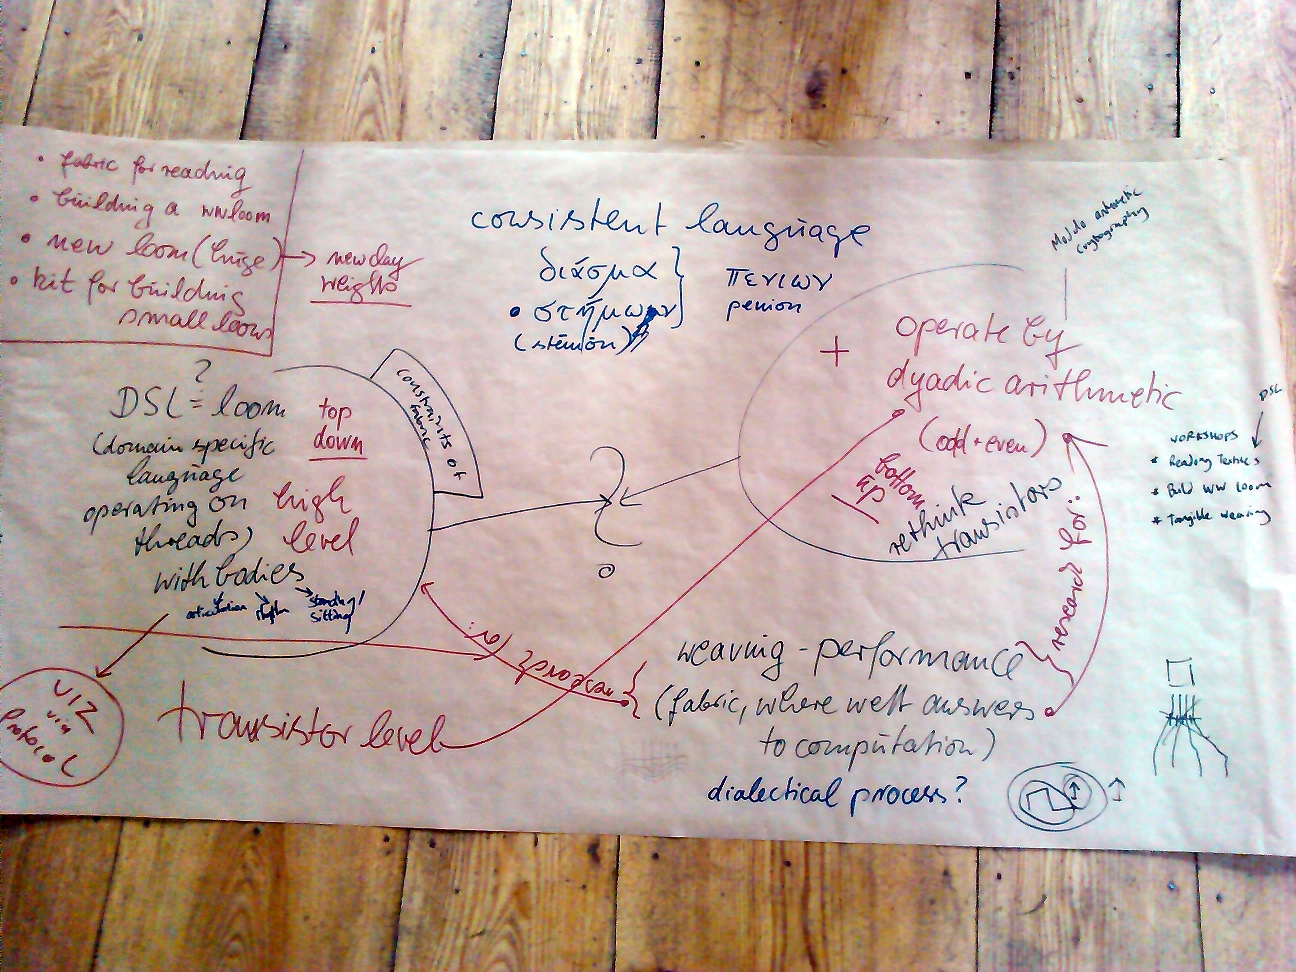 • fabric for reading
• building a wwloom
• new loom (huge) → new day
weights
• kit for building
small looms
consistent language
διάσμα
• στήμων
(stēmōn)
πενιων
penion
Modulo arithmetic
cryptography
?
DSL = loom
(domain specific
language
operating on
threads)
with bodies
articulation
rhythm
standing/
sitting
top
down
high
level
constraints of
fabric
?
+
operate by
dyadic arithmetic
(odd + even)
bottom
up
rethink
transistors
DSL
WORKSHOPS
* Reading Textiles
* Build WW Loom
* Tangible weaving
research for:
research for:
VIZ
via
Protocol
transistor level
weaving - performance
(fabric, where weft answers
to computation)
dialectical process?